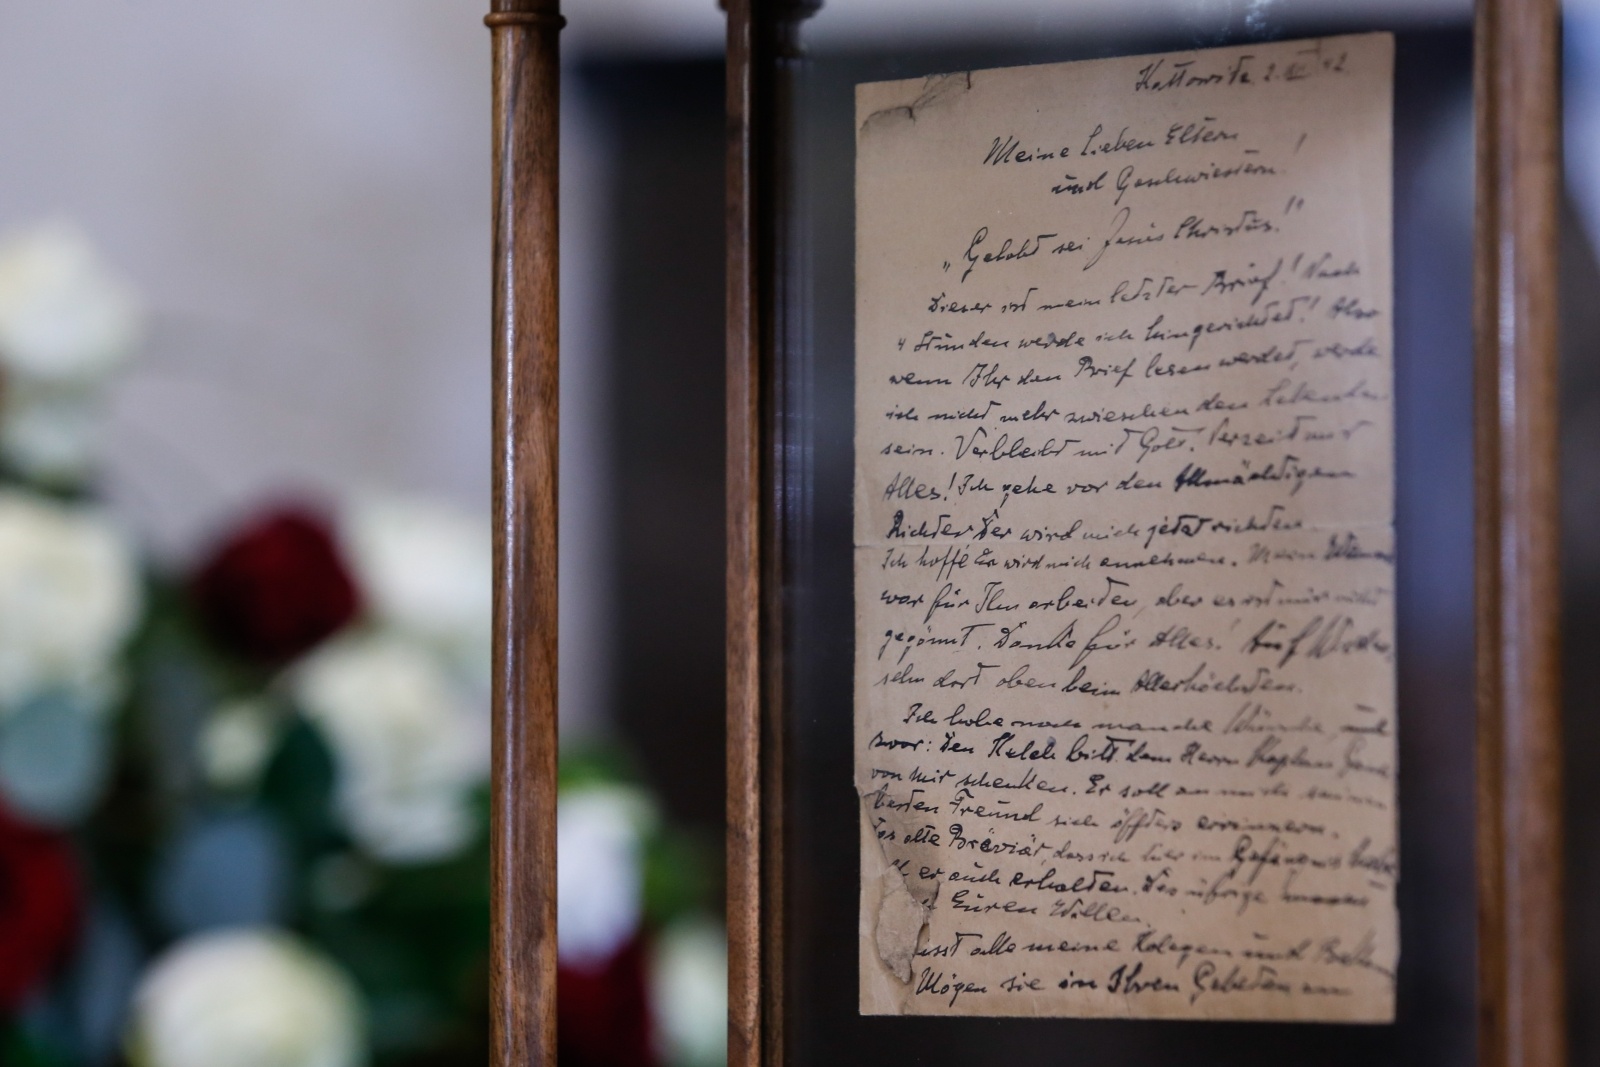 Kattowitz 2. XII 42
Meine lieben Eltern
und Geschwiestern!
„Gelobt sei Jesus Christus!"
Dieser ist mein letzter Brief! Nach
4 Stunden werde ich hingerichtet! Also
wenn Ihr den Brief lesen werdet, werde
ich nicht mehr zwieschen den
sein. Verbleibt mit Gott! Verzeit mir
Alles! Ich gehe vor den Allmächtigen
Richter Der wird mich jetzt richten.
Ich hoffe Er wird mich annehmen. Mein
war für Ihn arbeiten, aber es ist mir nicht
gegönnt. Danke für Alles! Auf Wieder-
sehn dort oben beim Allerhöchsten.
Ich habe noch manche Wünsche, und
zwar: Den Kelch bitt dem Herrn Kaplan
von mir schenken. Er soll an mich seinen
besten Freund sich öfters errinnern.
alte Bräviär, dass ich hier im Gefängnis
er auch erhalten. Das übrige
Euren Willen.
alle meine Kolegen und
Mögen sie in Ihren Gebeten an